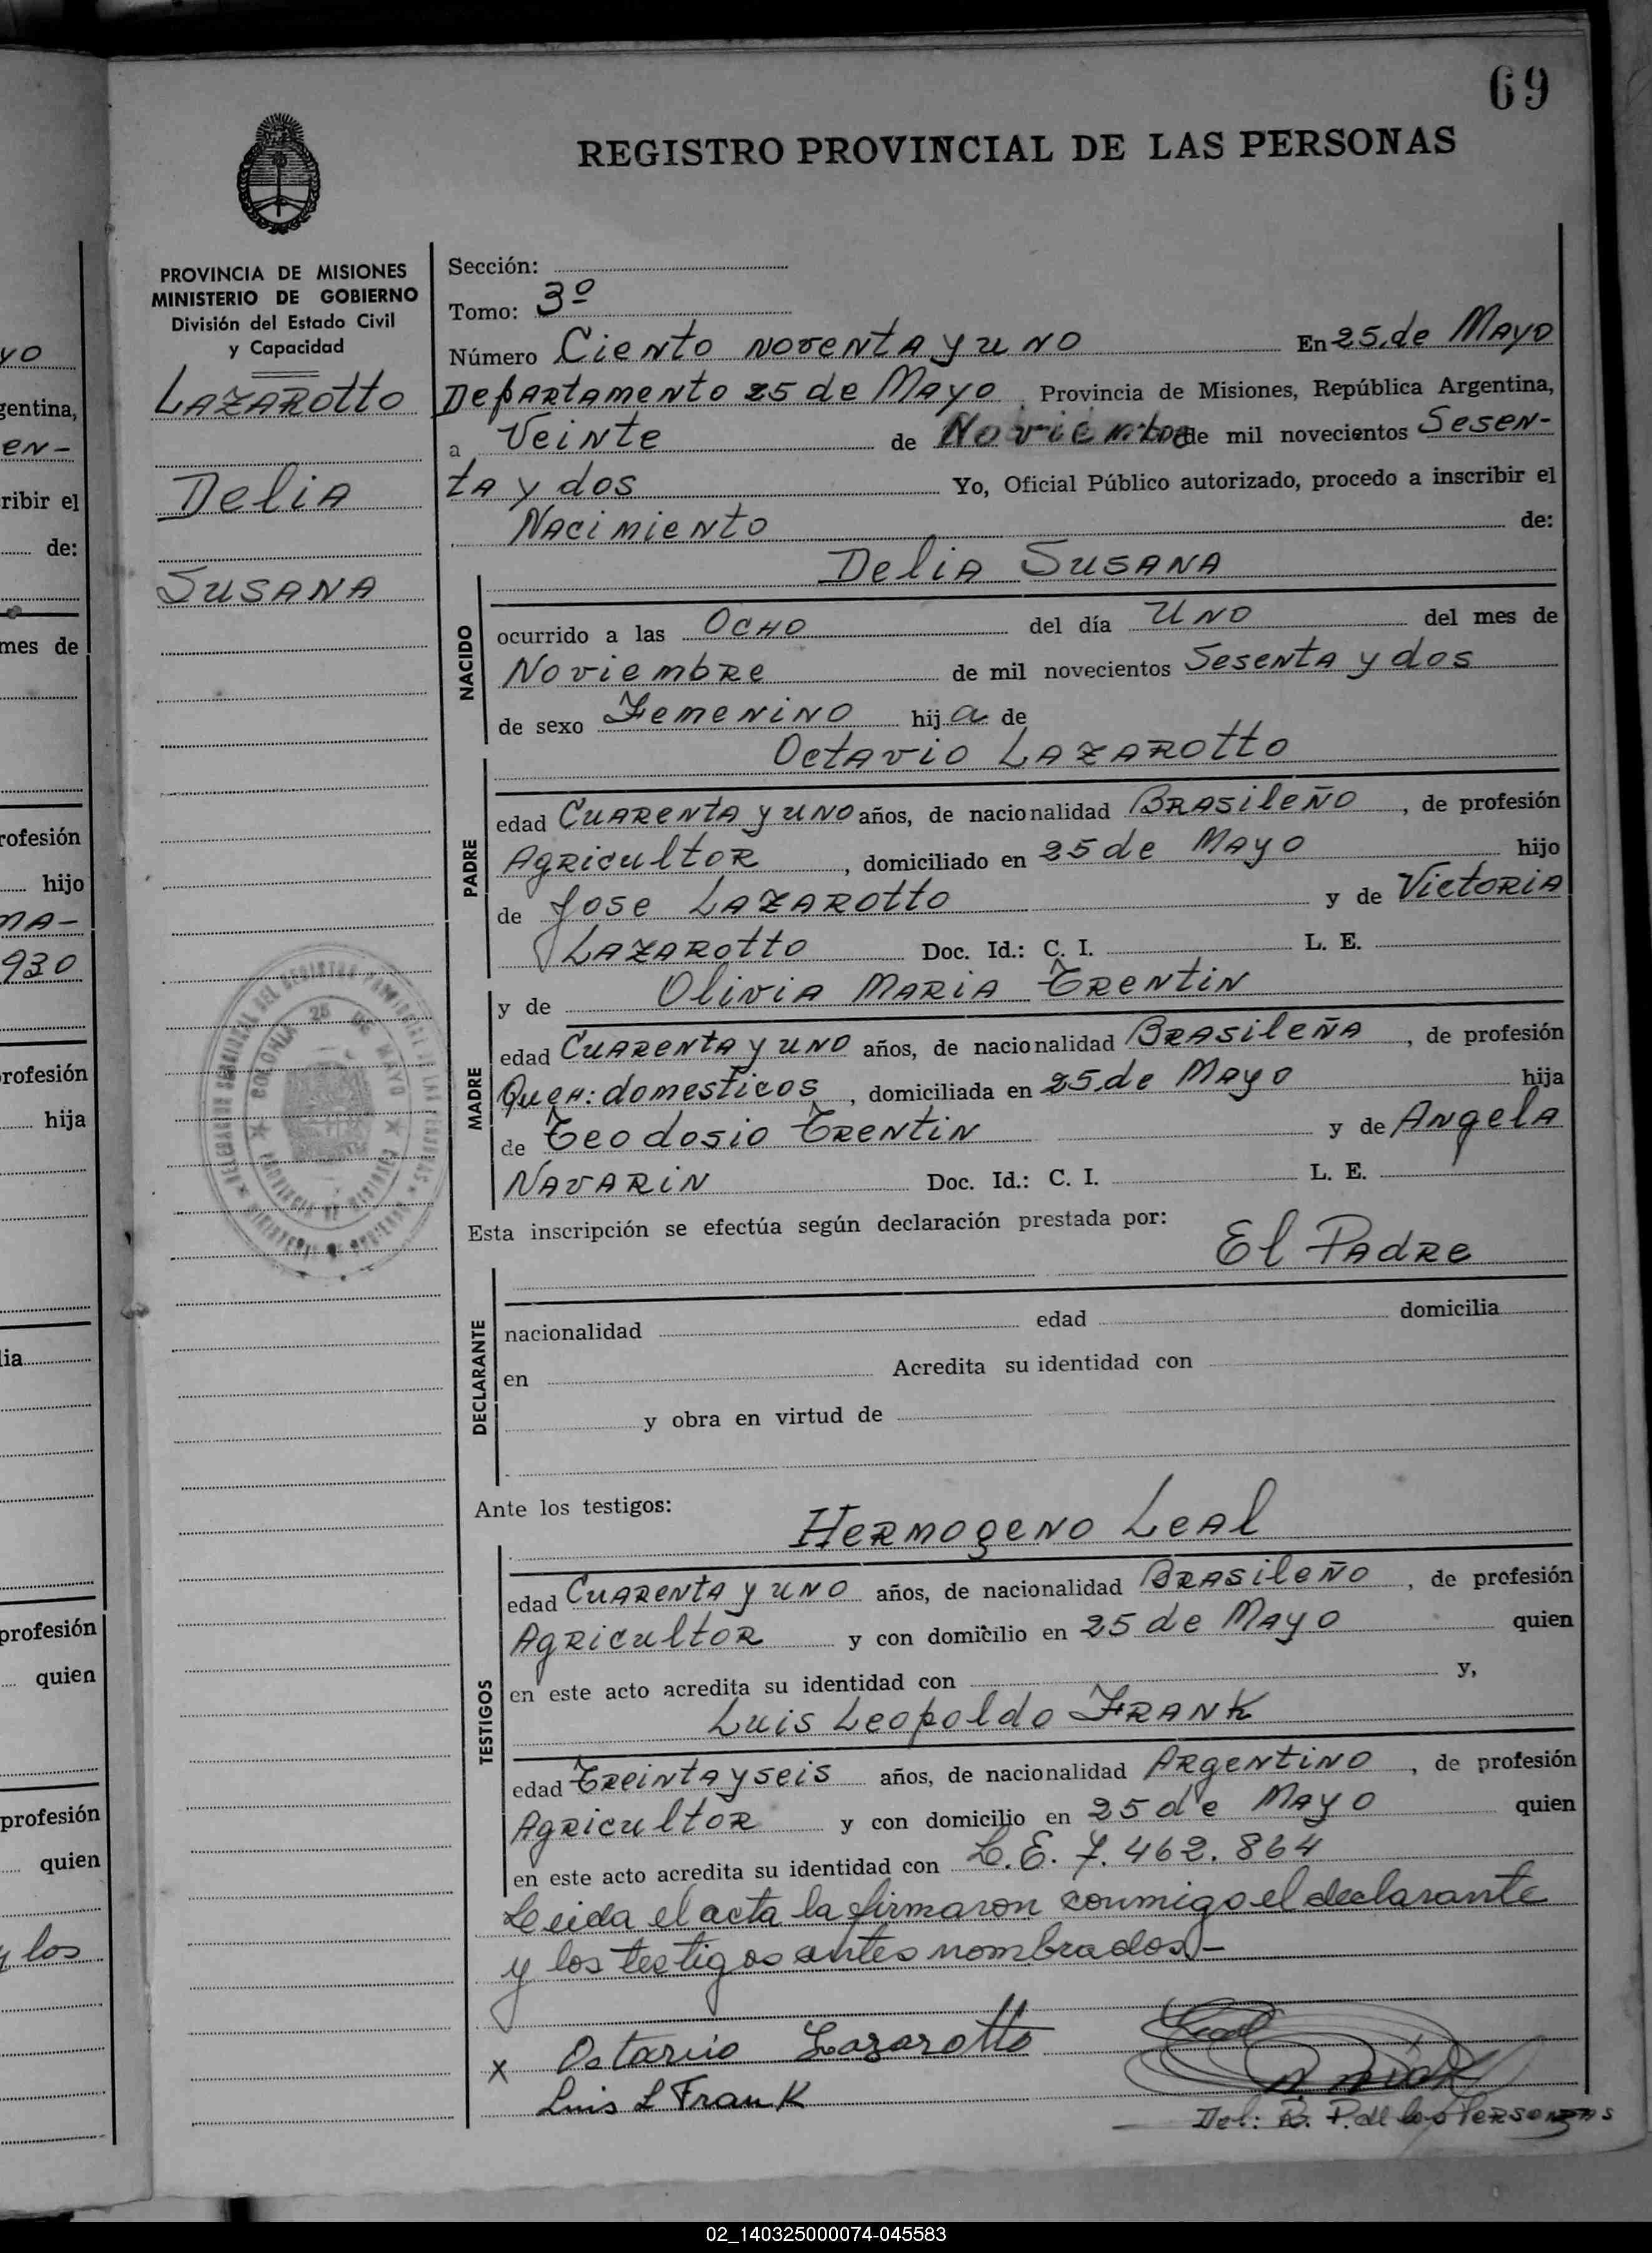 69
REGISTRO PROVINCIAL DE LAS PERSONAS
PROVINCIA DE MISIONES
MINISTERIO DE GOBIERNO
División del Estado Civil
y Capacidad
Lazarotto
Delia
Susana
Sección:
Tomo: 3º
Número Ciento noventa y uno En 25 de Mayo
Departamento 25 de Mayo Provincia de Misiones, República Argentina,
a Veinte de Noviembre de mil novecientos Sesen-
ta y dos Yo, Oficial Público autorizado, procedo a inscribir el
Nacimiento de:
Delia Susana
NACIDO
ocurrido a las Ocho del día Uno del mes de
Noviembre de mil novecientos Sesenta y dos
de sexo Femenino hij a de
Octavio Lazarotto
PADRE
edad Cuarenta y uno años, de nacionalidad Brasileño, de profesión
Agricultor, domiciliado en 25 de Mayo hijo
de Jose Lazarotto y de Victoria
Lazarotto Doc. Id.: C. I. L. E.
y de Olivia Maria Trentin
MADRE
edad Cuarenta y uno años, de nacionalidad Brasileña, de profesión
Queh: domesticos, domiciliada en 25 de Mayo hija
de Teodosio Trentin y de Angela
Navarin Doc. Id.: C. I. L. E.
Esta inscripción se efectúa según declaración prestada por:
El Padre
DECLARANTE
nacionalidad edad domicilia
en Acredita su identidad con
y obra en virtud de
Ante los testigos:
Hermogeno Leal
TESTIGOS
edad Cuarenta y uno años, de nacionalidad Brasileño, de profesión
Agricultor y con domicilio en 25 de Mayo quien
en este acto acredita su identidad con y,
Luis Leopoldo Frank
edad Treinta y seis años, de nacionalidad Argentino, de profesión
Agricultor y con domicilio en 25 de Mayo quien
en este acto acredita su identidad con L.E. 7.462.864
Leida el acta la firmaron conmigo el declarante
y los testigos antes nombrados.-
x Octavio Lazarotto
Luis L Frank
Del: R. P. de las Personas
02_140325000074-045583